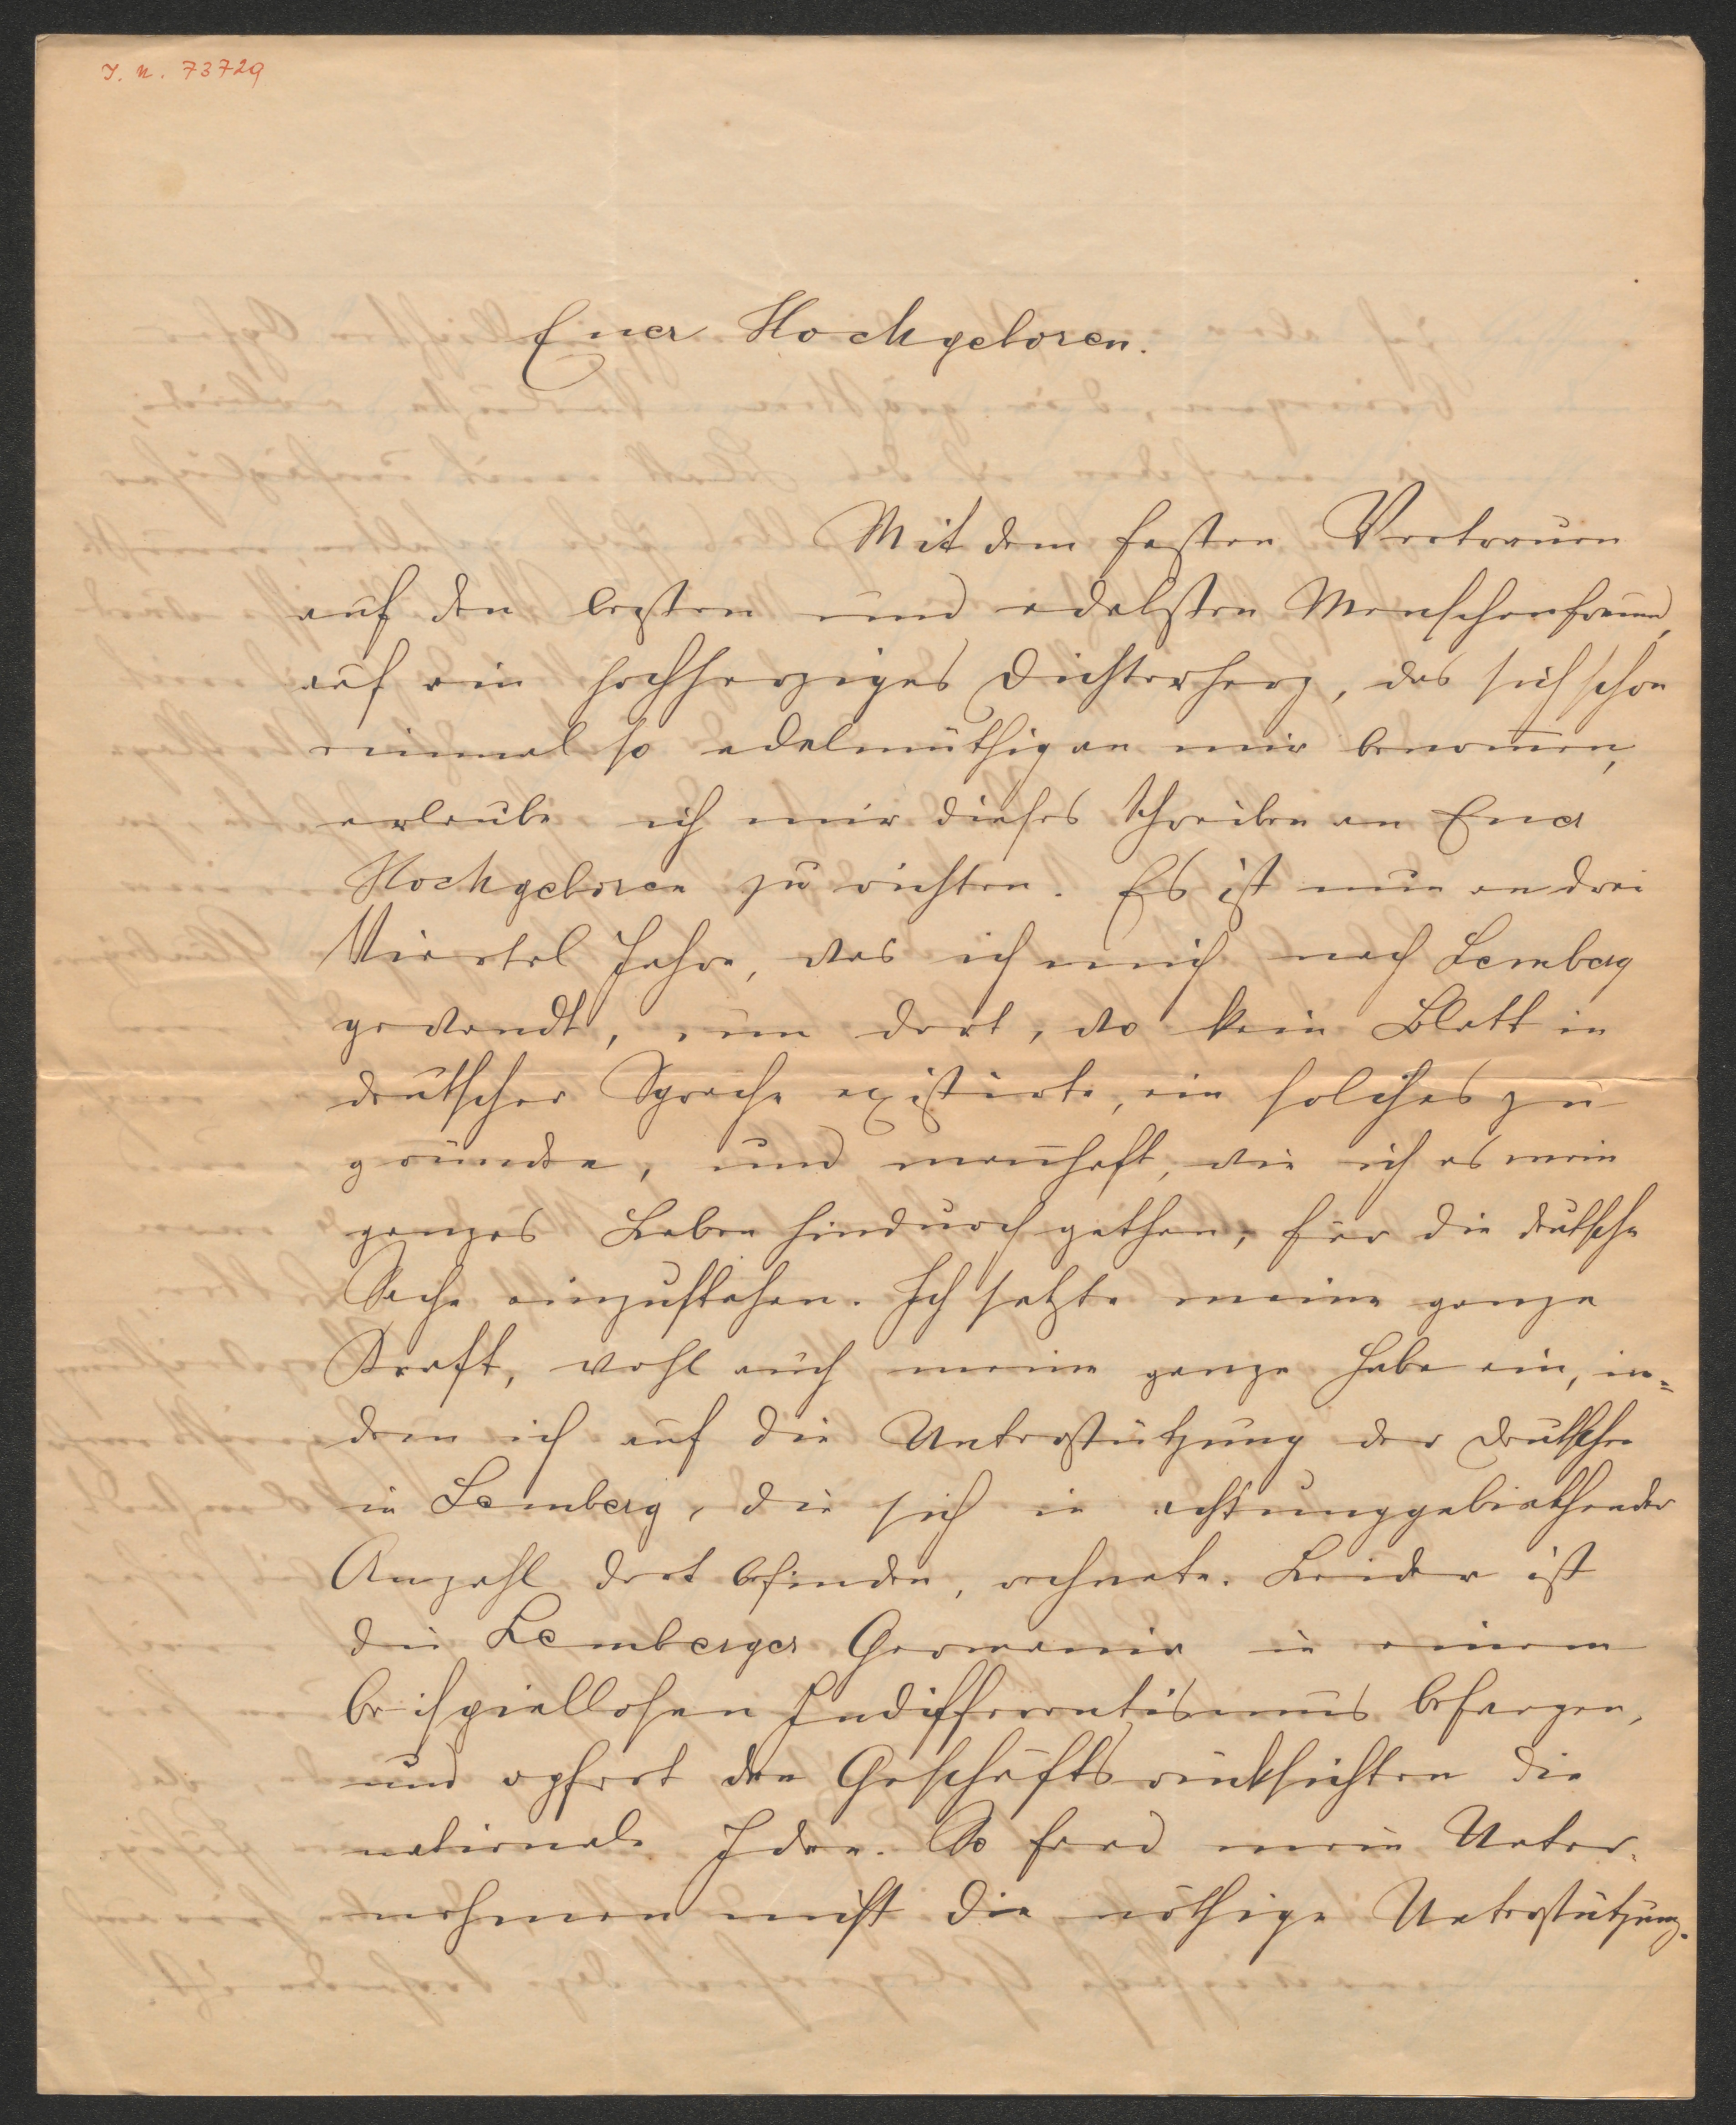 I. N. 73729
Euer Hochgeboren.
Mit dem festen Vertrauen
auf den besten und edelsten Menschenfreund,
auf ein hochherziges Dichterherz, das sich schon
einmal so edelmüthig an mir benom̄en,
erlaube ich mir dieses Schreiben an Euer
Hochgeboren zu richten. Es ist nun an drei
Viertel Jahre, das ich mich nach Lemberg
gewandt, um dort, wo kein Blatt in
deutscher Sprache existirte, ein solches zu
gründen, und man̄haft, wie ich es mein
ganzes Leben hindurch gethan, für die deutsche
Sache einzustehen. Ich setzte meine ganze
Kraft, wohl auch meine ganze Habe ein, in=
dem ich auf die Unterstützung der Deutschen
in Lemberg, die sich in achtunggebiethender
Anzahl dort befinden, rechnete. Leider ist
die Lemberger Germania in einem
beispiellosen Indifferentismus befangen,
und opfert den Geschäftsrücksichten die
nationale Idee. So fand mein Unter-
nehmen nicht die nöthige Unterstützung.